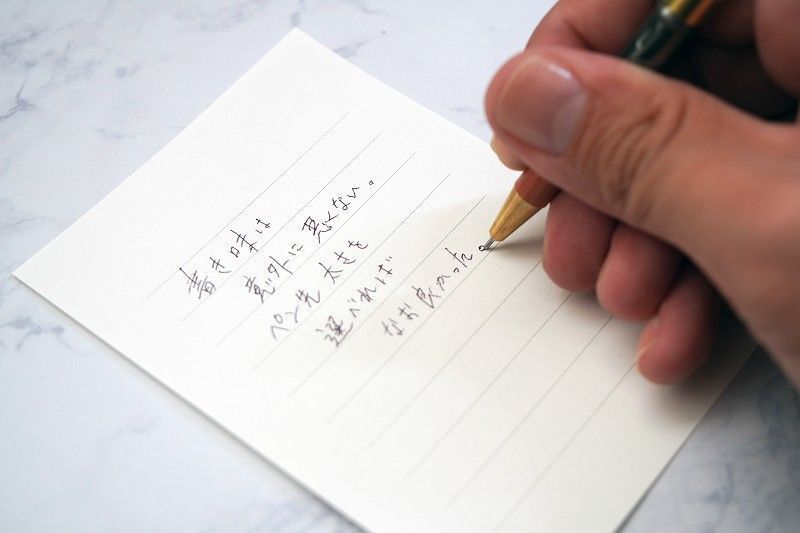 書き味は
意外に悪くない。
ペン先 太さを
選べれば
なお良かった。